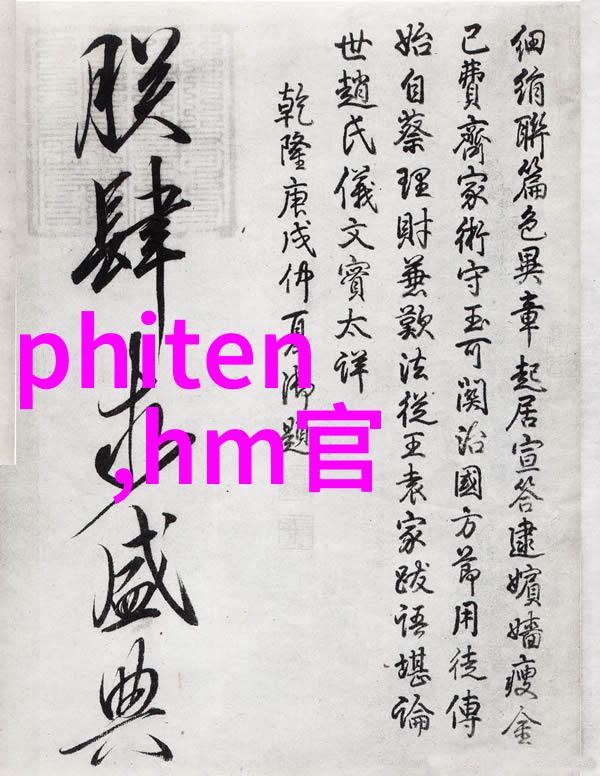 細絹聯篇色異章起居宣答逮嬪嬙瘦金
已費齊家術守玉可関治國方節用徒傳
始自蔡理財兼歎法從王袁家跋語堪論
世趙氏儀文實太詳
乾隆庚戌仲夏御題
朕肆求盛典
phiten
,hm官